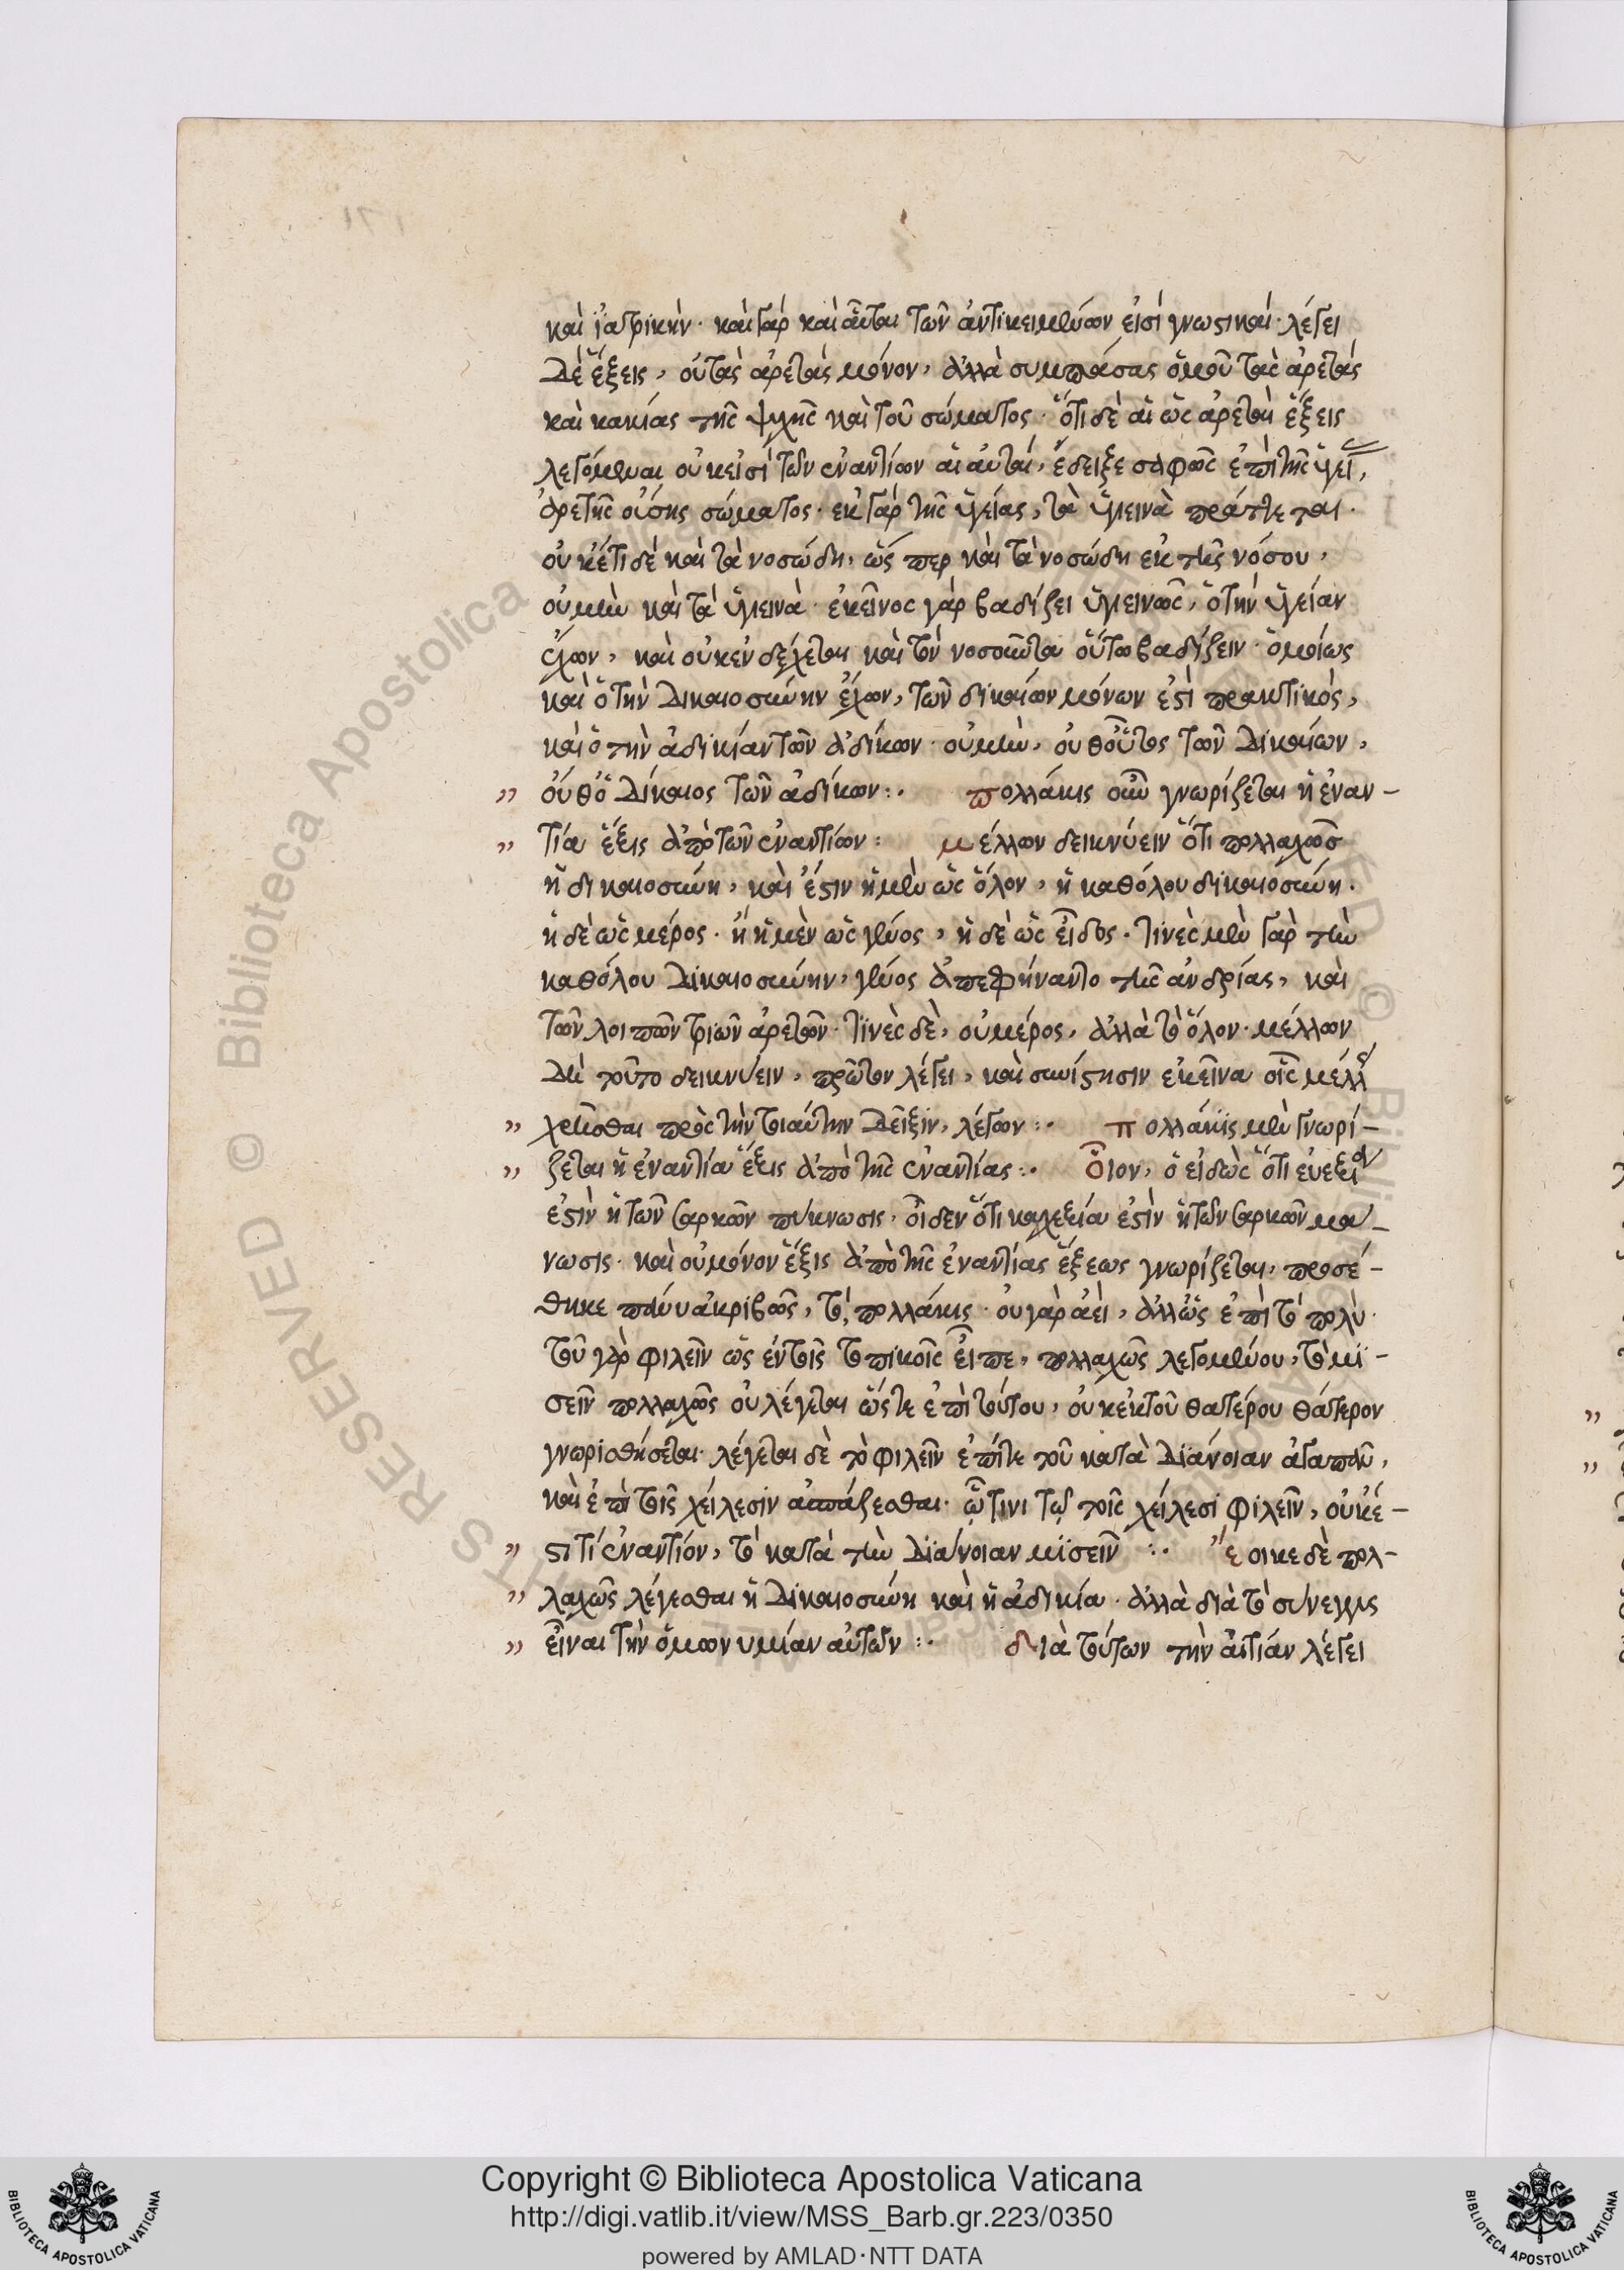 καὶ ἰατρικήν· καὶ γὰρ καὶ αὗται τῶν ἀντικειμένων εἰσὶ γνωστικαί· λέγει
δὲ ἕξεις, οὐ τὰς ἀρετὰς μόνον, ἀλλὰ συμπάσας ὁμοῦ τὰς ἀρετὰς
καὶ κακίας τῆς ψχῆς καὶ τοῦ σώματος· ὅτι δὲ αἱ ὡς ἀρεταὶ ἕξεις
λεγόμεναι οὐκ εἰσὶ τῶν ἐναντίων αἱ αὐταί, ἔδειξε σαφῶς ἐπὶ τῆς ὑγεί,
ἀρετῆς οὔσης σώματος· ἐκ γὰρ τῆς ὑγείας, τὰ ὑγιεινὰ πράττεται·
οὐκέτι δὲ καὶ τὰ νοσώδη, ὥσπερ καὶ τὰ νοσώδη ἐκ τῆς νόσου,
οὐ μὴν καὶ τὰ ὑγιεινά· ἐκεῖνος γὰρ βαδίζει ὑγιεινῶς, ὁ τὴν ὑγείαν
ἔχων, καὶ οὐκ ἐνδέχεται καὶ τὸν νοσοῦντα οὕτω βαδίζειν· ὁμοίως
καὶ ὁ τὴν δικαιοσύνην ἔχων, τῶν δικαίων μόνων ἐστὶ πρακτικός,
καὶ ὁ τὴν ἀδικίαν τῶν ἀδίκων· οὐ μὴν, οὐθ' οὗτος τῶν δικαίων,
" οὔθ' ὁ δίκαιος τῶν ἀδίκων :· πολλάκις οὖν γνωρίζεται ἡ ἐναν-
" τία ἕξις ἀπὸ τῶν ἐναντίων : μέλλων δεικνύειν ὅτι πολλαχῶς
ἡ δικαιοσύνη, καὶ ἔστιν ἡ μὲν ὡς ὅλον, ἡ καθόλου δικαιοσύνη·
ἡ δὲ ὡς μέρος· ἢ ἡ μὲν ὡς γένος, ἡ δὲ ὡς εἶδος· τινὲς μὲν γὰρ τὴν
καθόλου δικαιοσύνην, γένος ἀπεφήναντο τῆς ἀνδρίας, καὶ
τῶν λοιπῶν τριῶν ἀρετῶν· τινὲς δὲ, οὐ μέρος, ἀλλὰ τὸ ὅλον· μέλλων
δὲ τοῦτο δεικνύειν, πρῶτον λέγει, καὶ συνίστησιν ἐκεῖνα οἷς μέλλ
" χρῆσθαι πρὸς τὴν τοιαύτην δεῖξιν, λέγων :· πολλάκις μὲν γνωρί-
" ζεται ἡ ἐναντία ἕξις ἀπὸ τῆς ἐναντίας :· Οἷον, ὁ εἰδὼς ὅτι εὐεξία
ἐστὶν ἡ τῶν σαρκῶν πύκνωσις, οἶδεν ὅτι καχεξία ἐστὶν ἡ τῶν σαρκῶν μά-
νωσις· καὶ οὐ μόνον ἕξις ἀπὸ τῆς ἐναντίας ἕξεως γνωρίζεται, προσέ-
θηκε πάνυ ἀκριβῶς, τὸ, πολλάκις· οὐ γὰρ ἀεὶ, ἀλλ' ὡς ἐπὶ τὸ πολύ·
τοῦ γὰρ φιλεῖν ὡς ἐν τοῖς τοπικοῖς εἶπε, πολλαχῶς λεγομένου, τὸ μι-
σεῖν πολλαχῶς οὐ λέγεται ὥστε ἐπὶ τούτου, οὐκ ἐκ τοῦ θατέρου θάτερον
γνωρισθήσεται· λέγεται δὲ τὸ φιλεῖν ἐπί τε τοῦ κατὰ διάνοιαν ἀγαπᾶν,
καὶ ἐπὶ τοῖς χείλεσιν ἀσπάζεσθαι· ᾧ τινι τῷ τοῖς χείλεσι φιλεῖν, οὐκ ἔ-
" στι τί ἐναντίον, τὸ κατὰ τὴν διάνοιαν μισεῖν :· ἔοικε δὲ πολ-
" λαχῶς λέγεσθαι ἡ δικαιοσύνη καὶ ἡ ἀδικία· ἀλλὰ διὰ τὸ σύνεγγυς
" εἶναι τὴν ὁμωνυμίαν αὐτῶν :· διὰ τούτων τὴν αἰτίαν λέγει
Copyright © Biblioteca Apostolica Vaticana
http://digi.vatlib.it/view/MSS_Barb.gr.223/0350
powered by AMLAD·NTT DATA
BIBLIOTECA APOSTOLICA VATICANA
BIBLIOTECA APOSTOLICA VATICANA